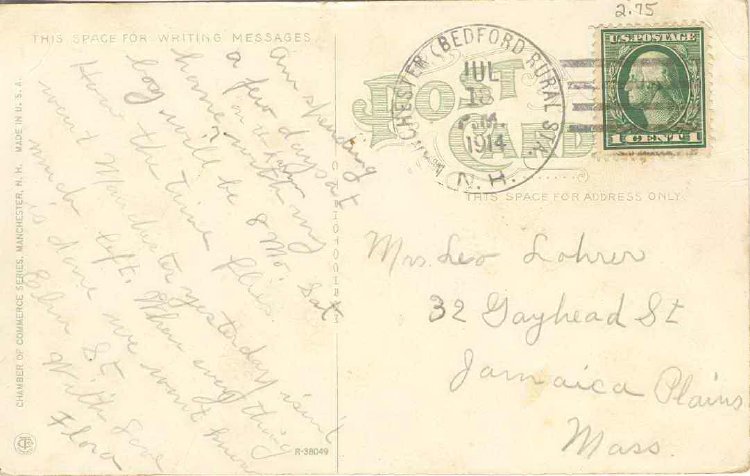 2.75
THIS SPACE FOR WRITING MESSAGES
Am spending
a few days at
home with my
boy will be 8 Mo. Sat
How the time flies
went Manchester yesterday isn't
much left. When everything
is done we won't know
Elm St.
With Love
Flora
CHAMBER OF COMMERCE SERIES, MANCHESTER, N. H. MADE IN U. S. A.
R-38049
POST
CARD
MANCHESTER (BEDFORD RURAL STA.)
JUL
18
1914
N. H.
U.S. POSTAGE
1 CENT 1
THIS SPACE FOR ADDRESS ONLY
Mrs. Leo Lohrer
32 Gayhead St
Jamaica Plains
Mass.